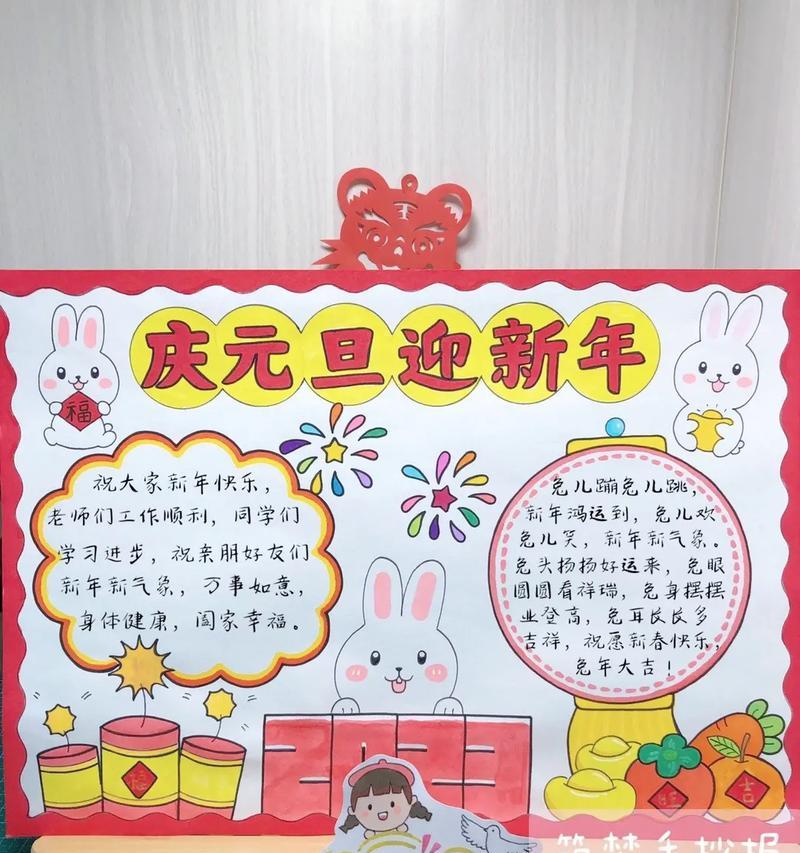 庆元旦迎新年
福
祝大家新年快乐，
老师们工作顺利，同学们
学习进步，祝亲朋好友们
新年新气象，万事如意，
身体健康，阖家幸福。
兔儿蹦兔儿跳，
新年鸿运到，兔儿欢
兔儿笑，新年新气象。
兔头扬扬好运来，兔眼
圆圆看祥瑞，兔身摆摆
业登高，兔耳长长多
吉祥，祝愿新春快乐，
兔年大吉！
福
2023
旺
吉